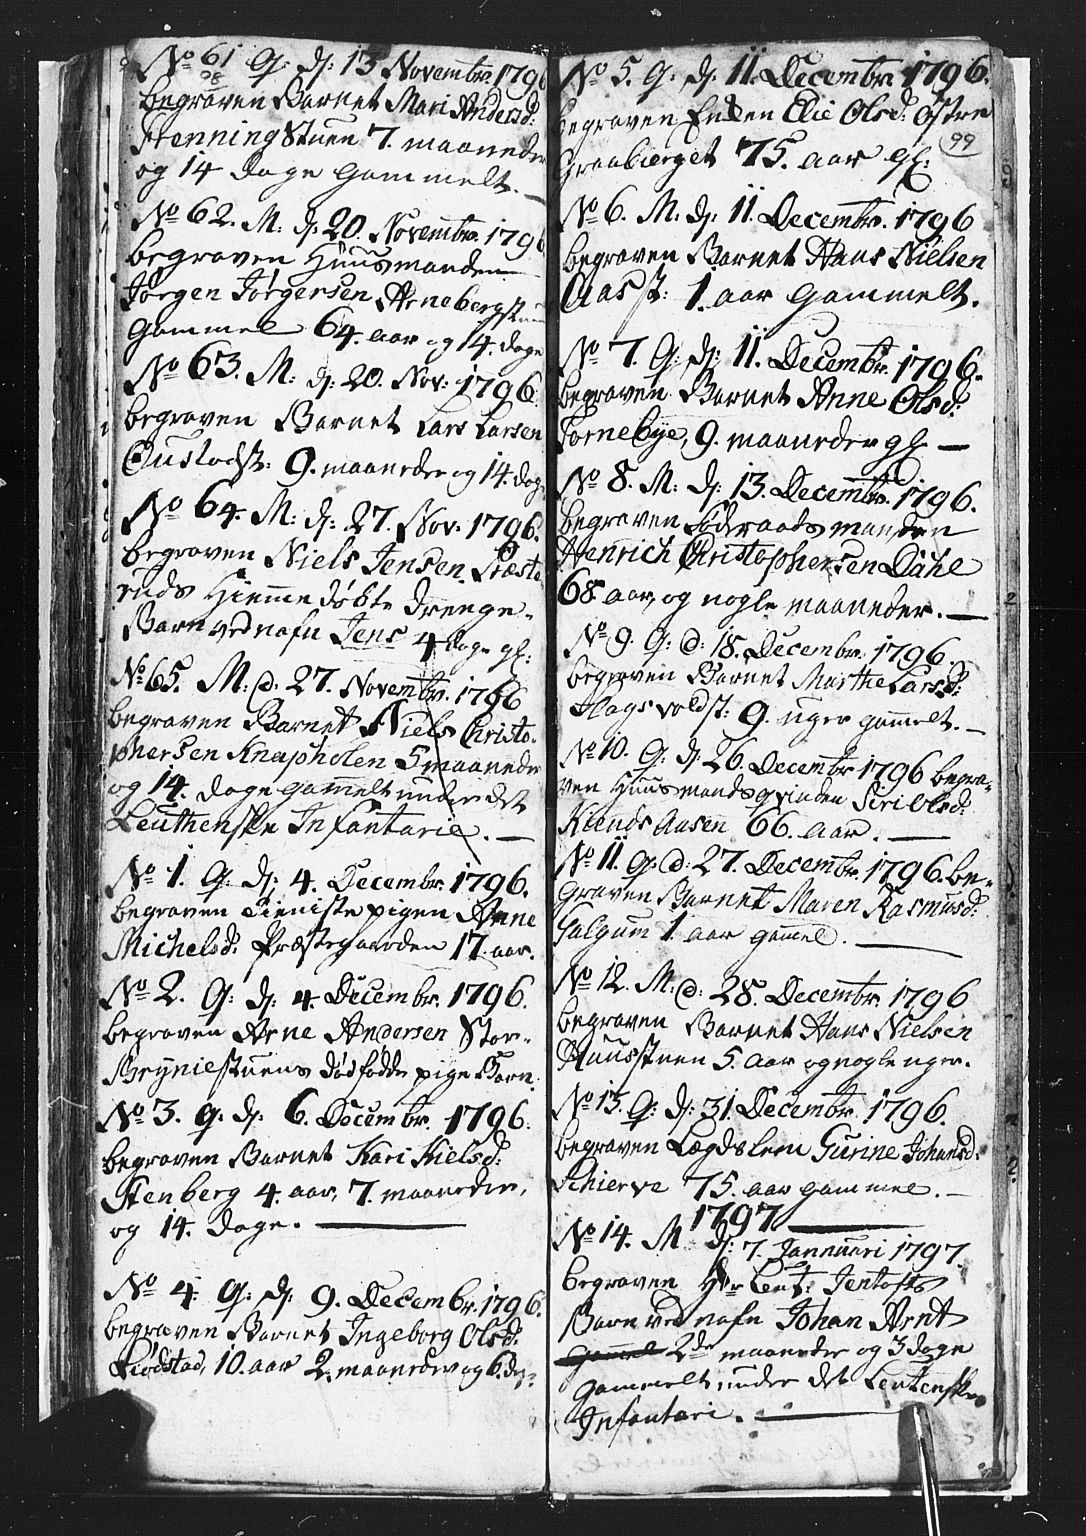 No 61 Q: d: 13 Novembr. 1796
98
begraven Barnet Mari Andersd:
Stenning Stuen 7. maaneder
og 14 dage gammelt.
No 62. M. d. 20. Novembr. 1796
begraven Huusmanden
Jørgen Jørgersen Arneberg
gammel 64. aar og 14. dage
No 63. M: d: 20. Nov: 1796
begraven Barnet Lars Larsen
9. maaneder og 14. dage
No 64. M: d: 27. Nov. 1796.
begraven Niels Jensen Præste
ruds Hiemme døbte drenge-
Barn ved nafn Jens 4 dage gl:
No 65. M: d: 27. Novembr. 1796
begraven Barnet Niels Christo-
phersen Knapholen 5 maaneder
og 14. dage gammelt under det
Leuthenske Infantarie.
No 1. Q: d: 4. Decembr. 1796.
begraven Tieniste pigen Anne
Michelsd: Præstegaarden 17. aar.
No 2. Q: d: 4. Decembr. 1796.
begraven Arne Andersen Stor-
Bryniestuens dødfødde pige Barn.
No 3. Q: d: 6. Decembr. 1796.
begraven Barnet Kari Kielsd:
Stenberg 4. aar, 7. maaneder,
og 14. dage.
No 4. Q: d: 9. Decembr. 1796.
begraven Barnet Ingeborg Olsd:
10. aar 2. maaneder og 6. dage
No 5. Q: d: 11. Decembr. 1796.
begraven Enken Elie Olsd: Østre
99
Graabierget 75. aar gl:
No 6. M: d: 11. Decembr. 1796
begraven Barnet Hans Nielsen
Aas st: 1. aar gammelt.
No 7. Q: d: 11. Decembr. 1796.
begraven Barnet Anne Olsd:
Tornebye, 9. maaneder gl
No 8. M: d: 13. Decembr. 1796.
begraven Føderaadsmanden
Henrich Christophersen Dahl
68 aar, og nogle maaneder.
No 9. Q: d: 18. Decembr. 1796.
begraven Barnet Marthe Larsd:
Hagsvoldst: 9. uger gammelt.
No 10. Q: d: 26. Decembr 1796 begra-
ven Huusmandsqvinden Siri Olsd:
Kiends Aasen 66. aar.
No 11. Q: d: 27. Decembr. 1796. be-
graven Barnet Maren Rasmusd:
Galgum 1. aar gammel.
No 12. M: d: 28. Decembr. 1796
begraven Barnet Hans Nielsen
Huusstuen 5. aar og nogle uger.
No 13. Q: d: 31. Decembr. 1796.
begraven Lægdslem Gurine Johansd:
Schierve 75. aar gammel.
1797
No 14. M d: 7. Jannuari 1797.
begraven Hr Leut: Jentofts
Barn ved nafn Johan Arnt
2de maaneder og 3 dage
gammelt under det Leutenske
Infantari.